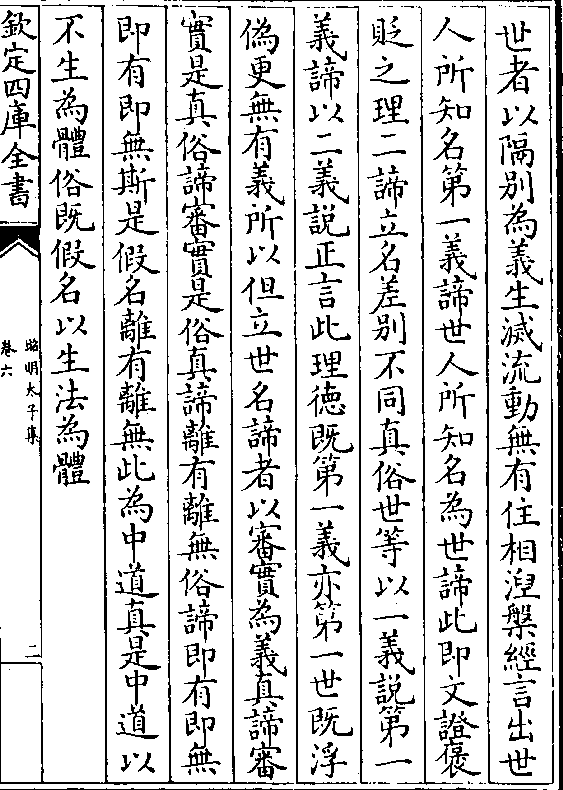 世者以隔别為義生滅流動無有住相湼槃經言出世
人所知名第一義諦世人所知名為世諦此即文證褒
貶之理二諦立名差别不同真俗世等以一義說第一
義諦以二義說正言此理德既第一義亦第一世既浮
偽更無有義所以但立世名諦者以審實為義真諦審
實是真俗諦審實是俗真諦離有離無俗諦即有即無
即有即無斯是假名離有離無此為中道真是中道以
不生為體俗既假名以生法為體
欽定四庫全書
昭明太子集
卷六
二